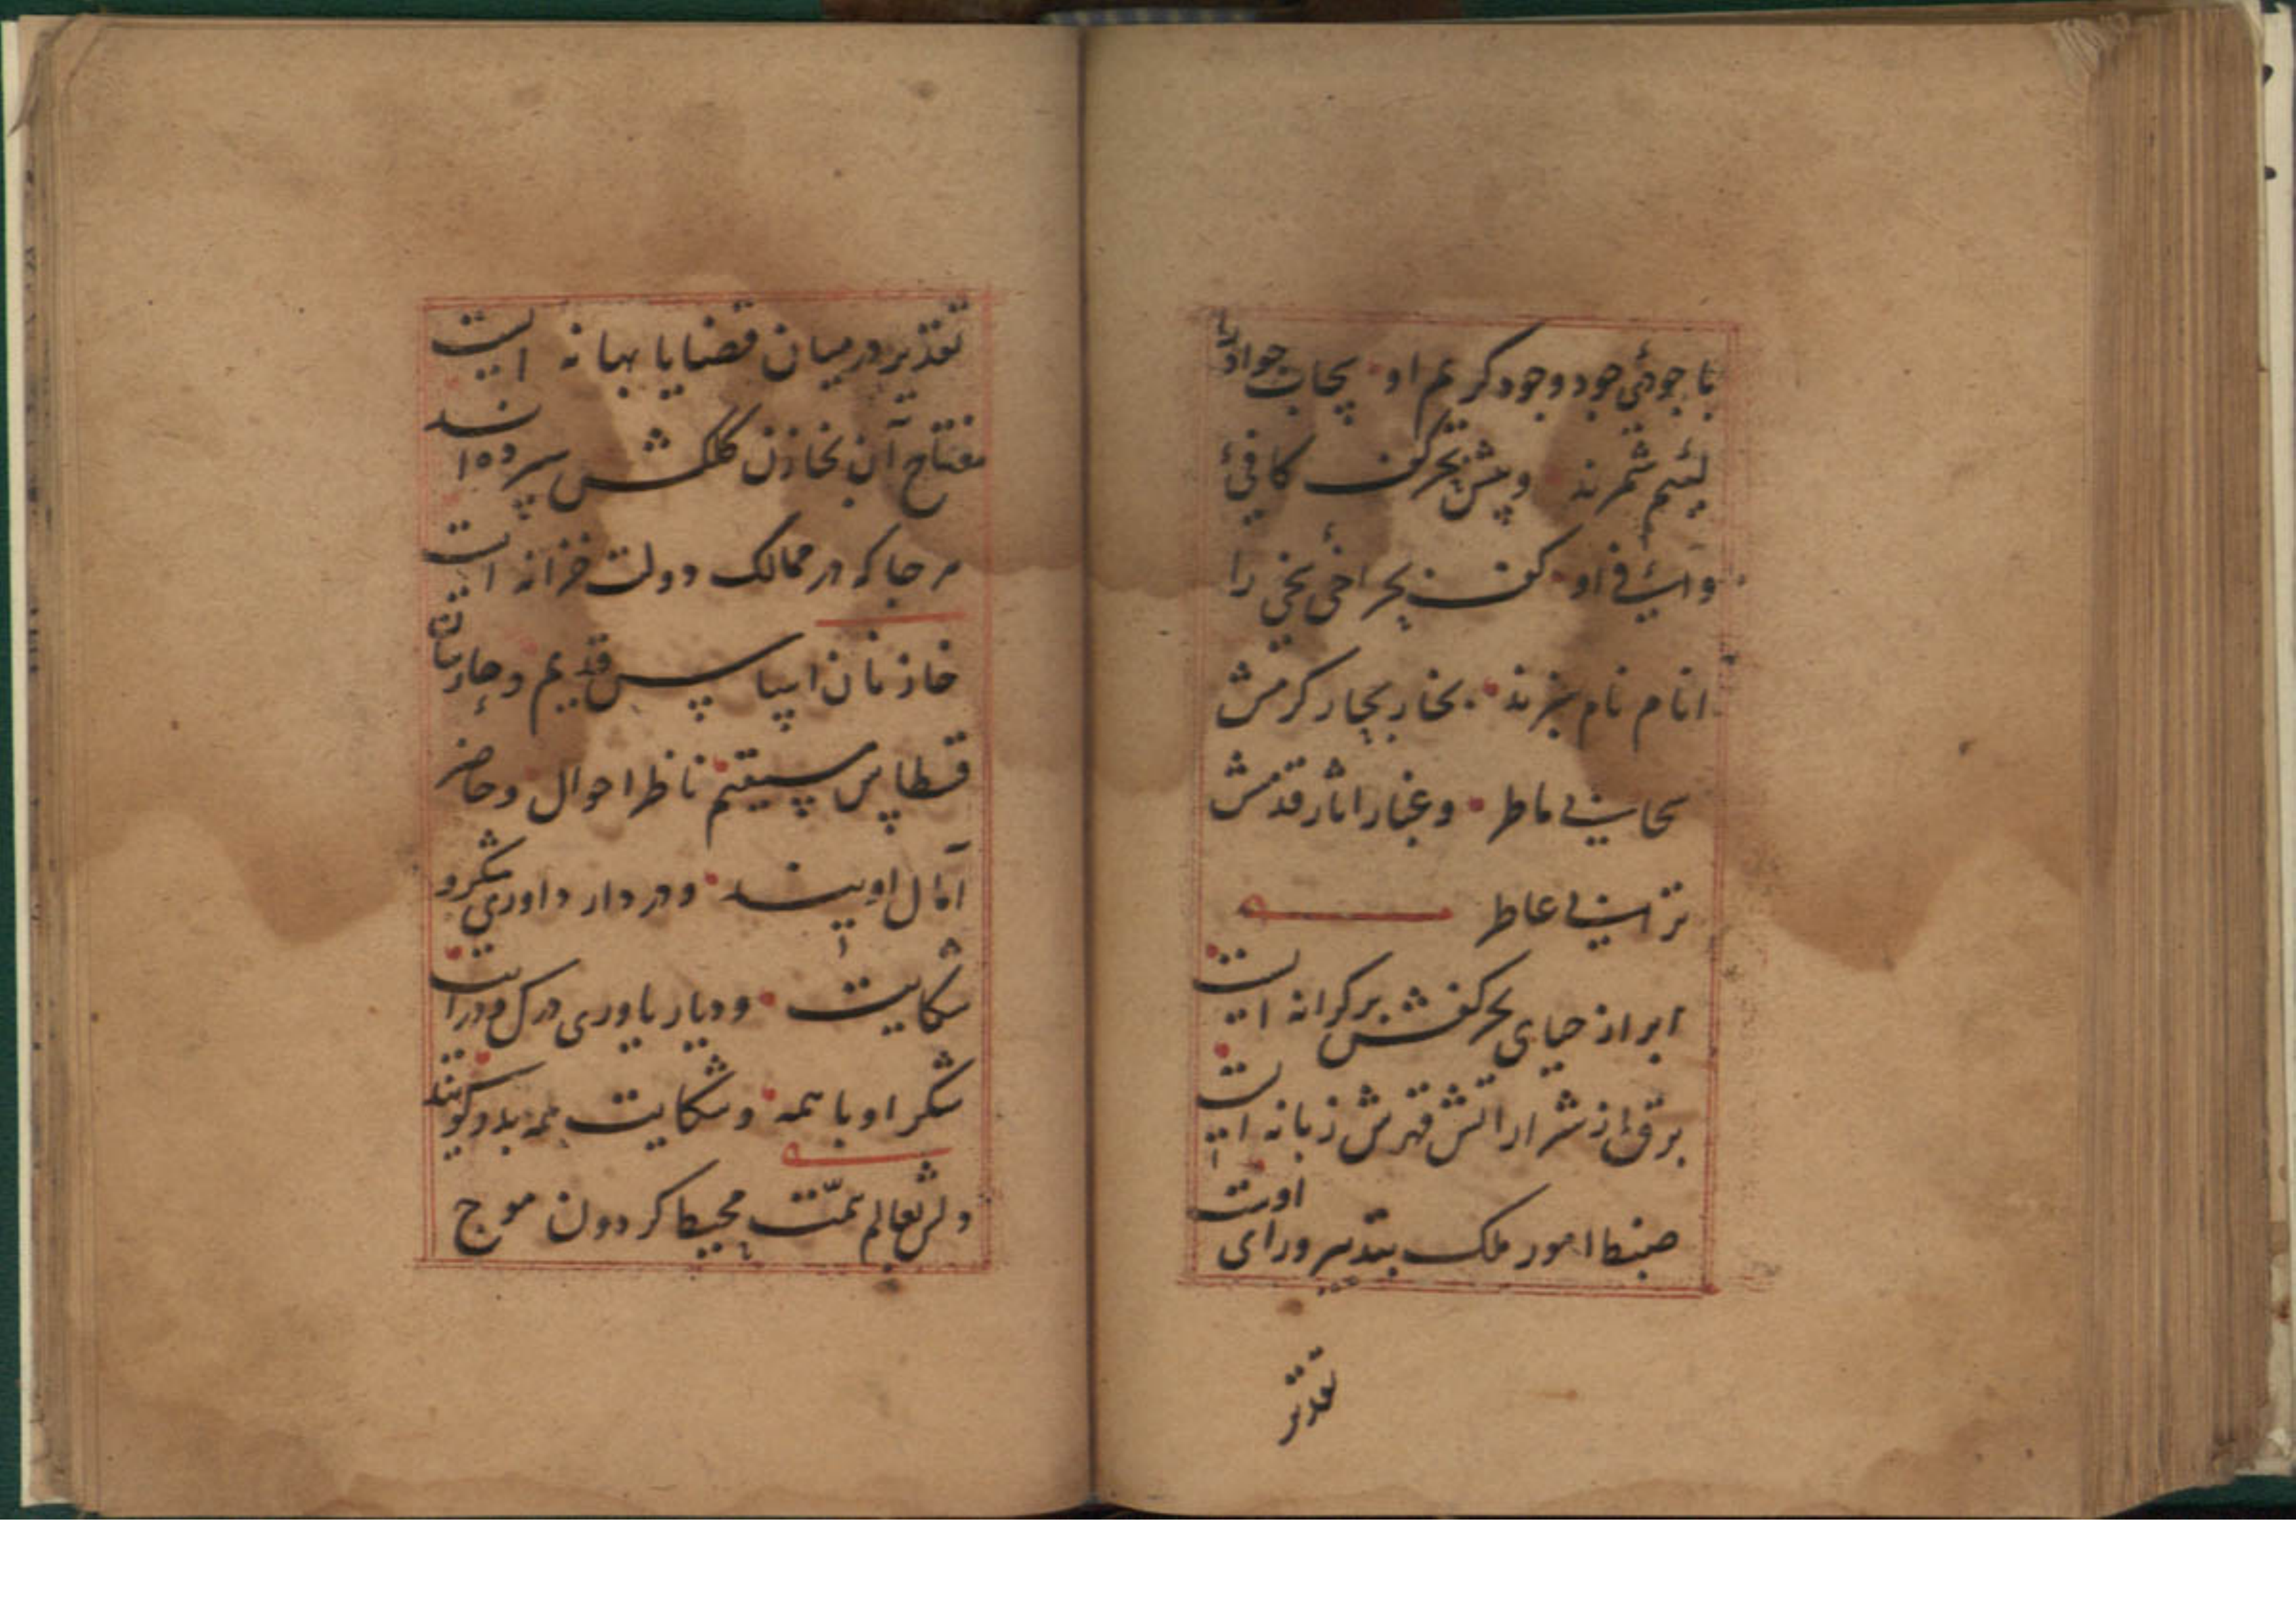 با جودئ جود وجود کریم او بحاب جواد را
لئیم شمرند و پیش بحر کف کافئ
وافی او کف بحر اخی بخی را
انام نام نبرند بخار بحار کرمش
سحابی ماطر و غبار اثار قدمش
ترابی عاطر
ابر از حیای بحر کفش بر کرانه ایست
برقئ از شرار اتش قهرش زبانه ایست
ضبط امور ملک بتدبیر ورای اوست
تقدیر
تقدیر در میان قضایا بهانه ایست
مفتاح آن بخازن کلکش سپرده اند
هر جا که در ممالک دولت خزانه ایست
خازنان اساس قدیم و
قسطاس مستقیم ناظر احوال و حاضر
آمال اویند و در دار داوری شکر و
شکایت و دیار یاوری درک و درایت
شکر او با همه و شکایت همه بدو گویند
دلش بعالم همّت محیط کردون موج